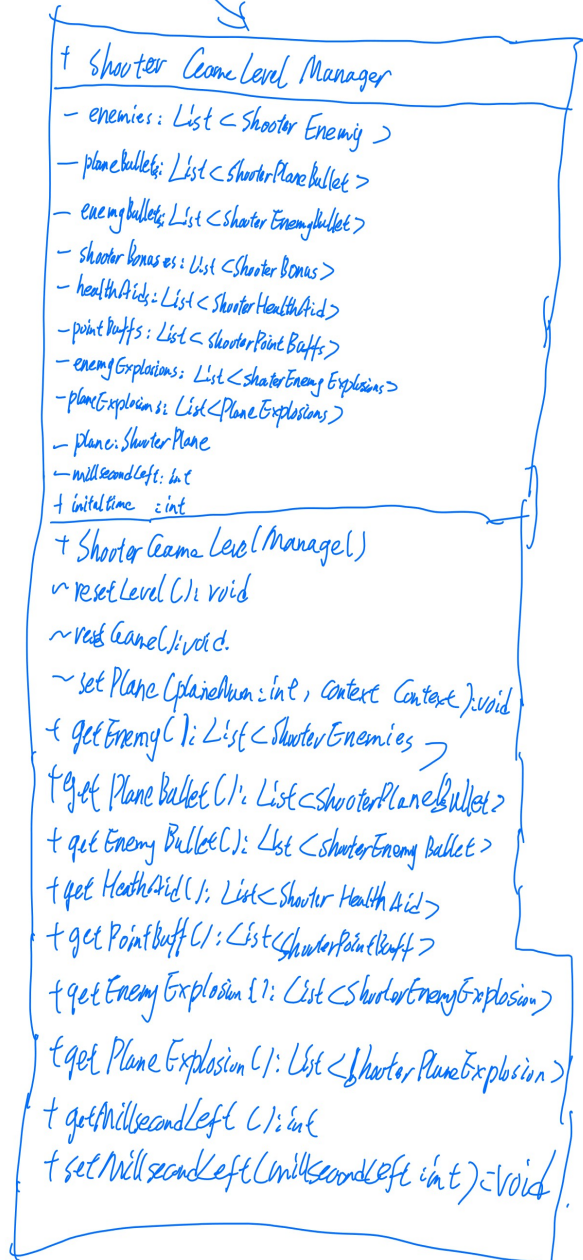 + Shooter Game Level Manager
- enemies: List < Shooter Enemy >
- planeBullets: List <ShooterPlaneBullet>
- enemyBullets: List <Shooter EnemyBullet>
- shooter Bonuses: List <Shooter Bonus>
- healthAids: List <ShooterHealthAid>
- pointBuffs: List < ShooterPointBuffs >
- enemyExplosions: List <shooterEnemy Explosions>
- planeExplosions: List <Plane Explosions>
- plane: ShooterPlane
- millsecondLeft: int
+ initaltime : int
+ Shooter Game Level Manage()
~ resetLevel (): void
~ reset Game(): void.
~ set Plane (planeNum: int, context Context ): void
+ getEnemy( ): List <ShooterEnemies >
+ get PlaneBullet(): List <ShooterPlaneBullet>
+ get Enemy Bullet(): List <shooterEnemy Bullet>
+ get HeathAid(): List <Shooter HealthAid>
+ get PointBuff(): List <ShooterPointBuff>
+ getEnemy Explosion(): List <ShooterEnemyExplosion>
+ get Plane Explosion(): List <ShooterPlaneExplosion>
+ getMillsecondLeft (): int
+ setMillsecondLeft(millsecondLeft : int): void